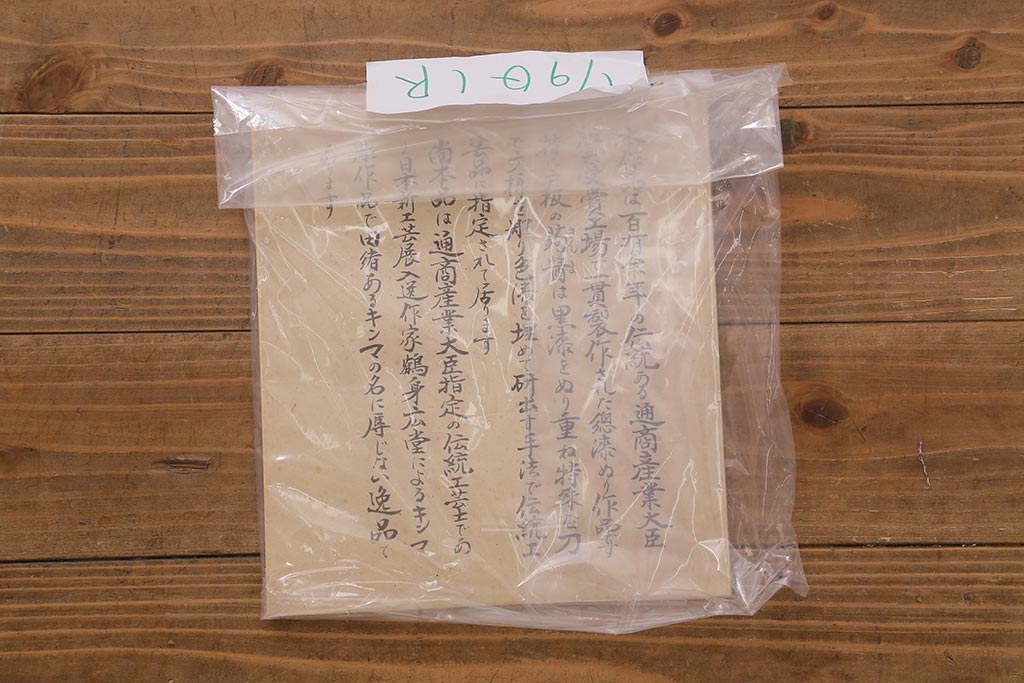 本作品は百有余年の伝統ある通商産業大臣
賞受賞工場で一貫製作された總漆ぬり作品です
板の は黒漆をぬり重ね特殊な刀
で文様を彫り色漆を埋めて研出す手法で伝統工
芸品に指定されて居ります
尚本品は通商産業大臣指定の伝統工芸士であ
り日本新工芸展入選作家鶴身広堂によるキンマ
作品で由緒あるキンマの名に辱じない逸品で
有ります